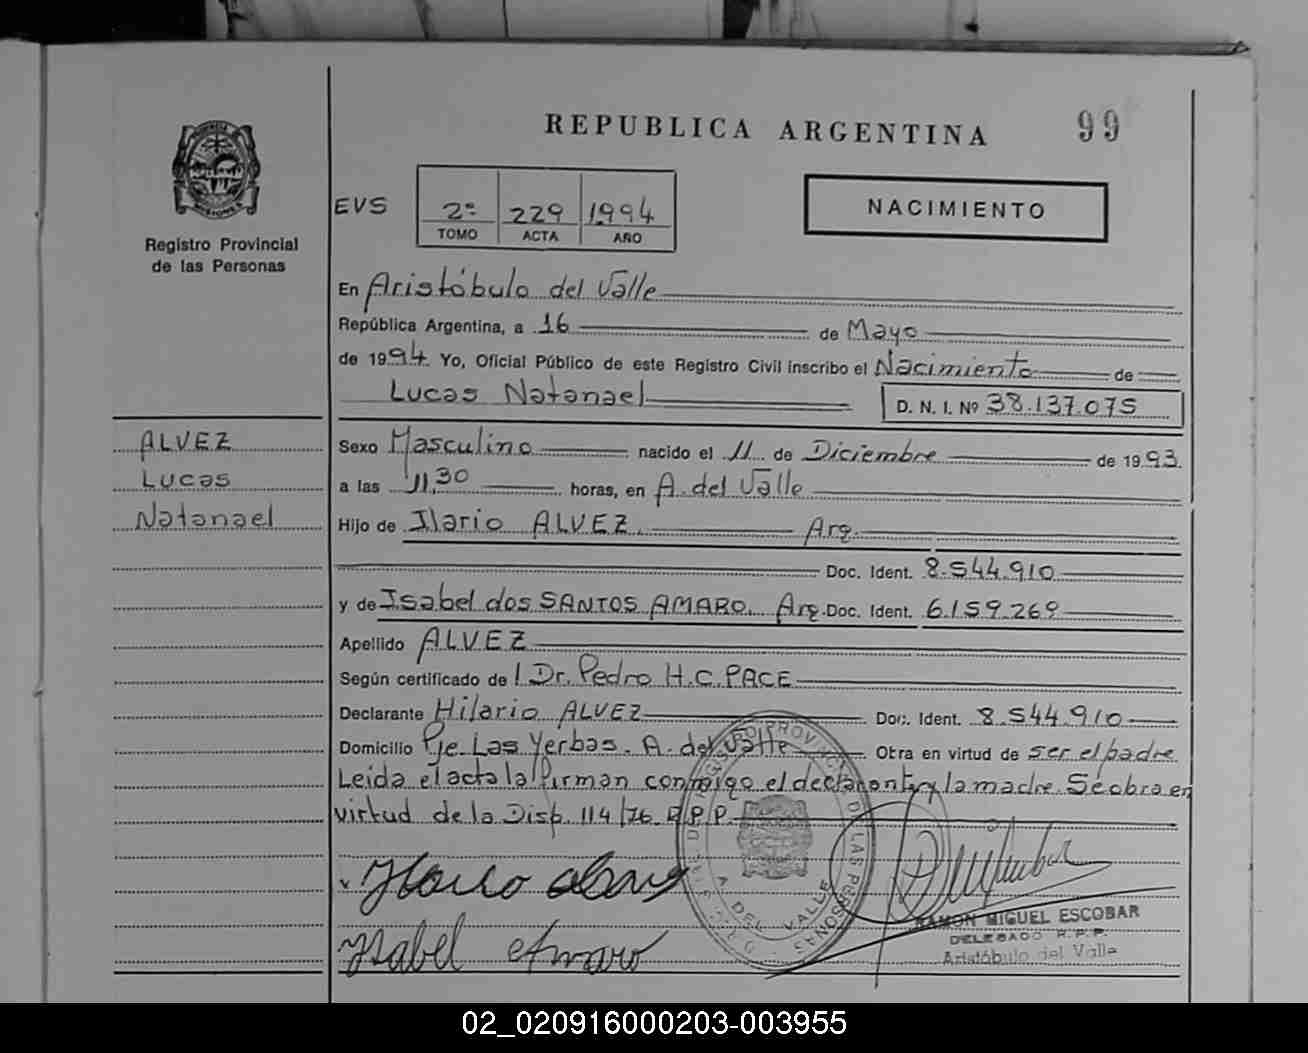 REPUBLICA ARGENTINA
99
PROVINCIA DE MISIONES
Registro Provincial
de las Personas
EVS
2º 229 1994
TOMO ACTA AÑO
NACIMIENTO
En Aristóbulo del Valle
República Argentina, a 16 de Mayo
de 1994. Yo, Oficial Público de este Registro Civil inscribo el Nacimiento de
Lucas Natanael
D. N. I. Nº 38.137.075
ALVEZ
Lucas
Natanael
Sexo Masculino nacido el 11 de Diciembre de 1993.
a las 11,30 horas, en A. del Valle
Hijo de Ilario ALVEZ. Arg.
Doc. Ident. 8.544.910
y de Isabel dos SANTOS AMARO. Arg. Doc. Ident. 6.159.269
Apellido ALVEZ
Según certificado de l Dr. Pedro H.C. PACE
Declarante Hilario ALVEZ Doc. Ident. 8.544.910
Domicilio Pje. Las Yerbas. A. del Valle Otra en virtud de ser el padre
Leída el acta la firman conmigo el declarante y la madre. Se obra en
virtud de la Disp. 114/76 R.P.P.
Isabel Amaro
A. DEL VALLE
RAMON MIGUEL ESCOBAR
DELEGADO R.P.P.
Aristóbulo del Valle
02_020916000203-003955